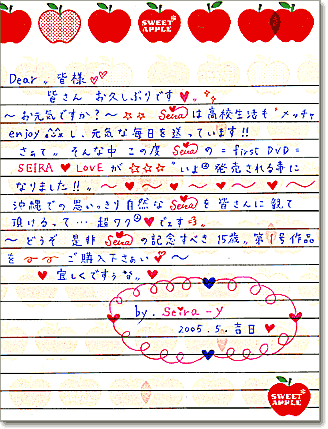 SWEET APPLE
Dear 〃 皆様♡♡
皆さん お久しぶりです♥。
〜お元気ですか？〜☆☆ Seira は高校生活も メッチャ
enjoy し、元気な毎日を送っています!!
さぁて〃 そんな中 この度 Seira の =first DVD=
SEIRA ♥ LOVE が ☆☆☆ いよ② 発売される事に
なりました!!〃 〜♥〜♥〜♥〜♥〜
沖縄での思いっきり自然な Seira を皆さんに観て
頂けるって… 超ワク②♥でェす
〜どうぞ 是非 Seira の記念すべき 15歳〃 第1号作品
を ご購入下さぁい♥〜
♥ 宜しくですぅな〃♥
by. Seira-y
2005.5.吉日♥
SWEET APPLE